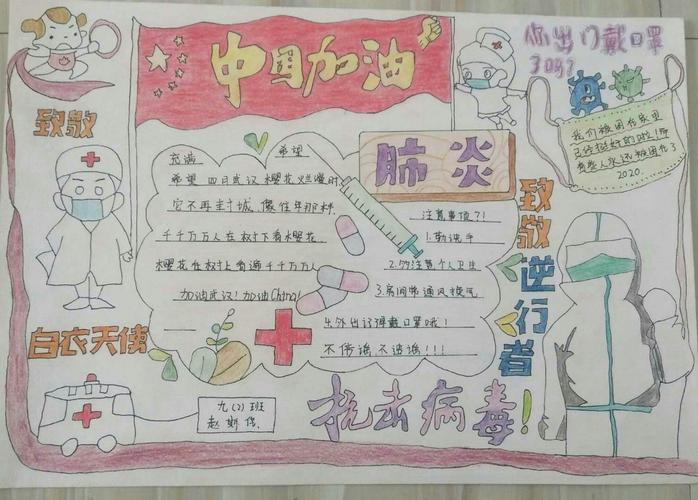 中国加油
你出门戴口罩
了吗?
致敬
白衣天使
充满 希望
希望 四月武汉樱花烂漫时
它不再封城,像往年那样
千千万万人在树下看樱花
樱花在树上看遍千千万万人
加油武汉!加油China!
肺炎
注意事项?!
1.勤洗手
2.多注意个人卫生
3.房间常通风换气
4.外出记得戴口罩哦!
不传谣,不造谣!!!
我们被困在家里
已经挺好的啦!而
有些人永远被困在了
2020.
致敬逆行者
抗击病毒!
九(2)班